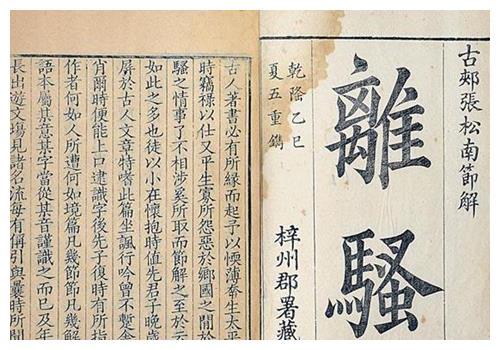 古郟張松南節解
離騷
乾隆乙巳
夏五重鐫
梓州郡署藏
古人著書必有所緣而起予以愞薄幸生太平
時竊祿以仕又平生寡所怨惡於鄉國之間於
騷之情事了不相涉奚所取而節解之至於
如此之多也徒以小在懷抱時值先君子晚歲
屏於古人文章特嗜此篇坐諷行吟曾不蹔舍
肖爾時便能上口逮識字後先子復時有所指
作者何如人所遭何如境篇凡幾節節凡幾解
語本屬某意某字當從某音謹識之而已及年
長出遊文場見諸名流每有偁引與曩時所聞